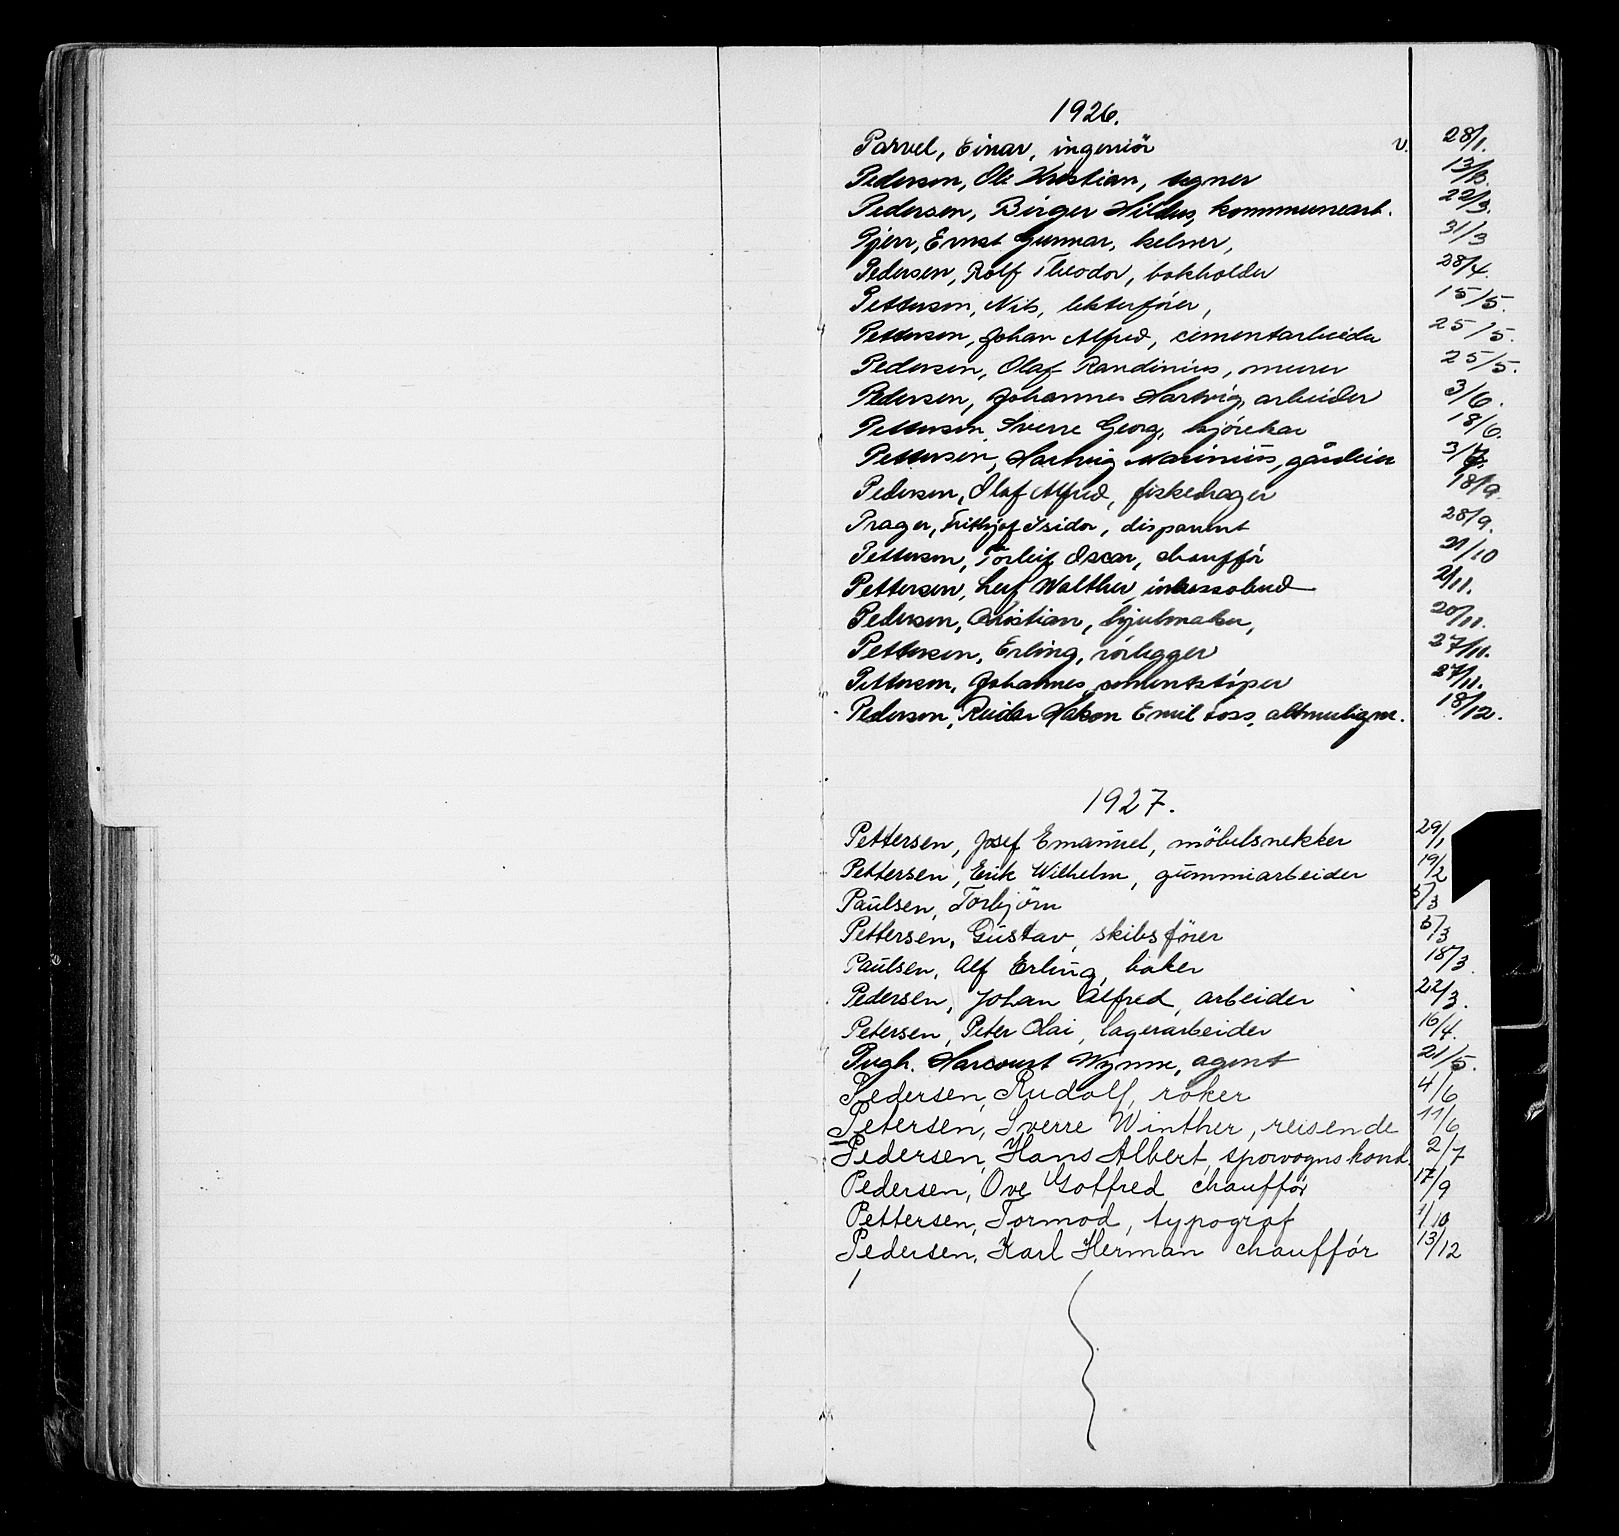 1926.
Parvel, Einar, ingeniör v. 28/1.
Pedersen, Ole Kristian, tegner 13/3.
Pedersen, Birger Hildus, kommunearb. 22/3.
Pjerr, Ernst Gunnar, kelner, 31/3
Pedersen, Rolf Theodor, bokholder 28/4.
Pettersen, Nils, lekterfører, 15/5.
Pettersen, Johan Alfred, cementarbeider 25/5.
Pedersen, Olaf Randinius, murer 25/5.
Pedersen, Johannes Hartvig, arbeider 3/6.
Pettersen, Sverre Georg, kjörekar 18/6.
Pettersen, Hartvig Marinius, gårdeier 3/7.
Pedersen, Olaf Alfred, fiskedrager 18/9.
Prager, Frithjof Isidor, disponent 28/9.
Pettersen, Torleif Oscar, chauffør 21/10
Pettersen, Leif Walther, inkassobud 2/11.
Pedersen, Christian, hjulmaker, 20/11.
Pettersen, Erling, rörlegger 27/11.
Pettersen, Johannes, cementstöper 27/11.
Pedersen, Reidar Håkon Emil Foss, altmuligm. 18/12.
1927.
Pettersen, Josef Emanuel, möbelsnekker 29/1
Pettersen, Erik Wilhelm, gummiarbeider 19/2
Paulsen, Torbjörn 5/3
Pettersen, Gustav, skibsförer 5/3
Paulsen, Alf Erling, baker 18/3.
Pedersen, Johan Alfred, arbeider 22/3.
Petersen, Peter Olai, lagerarbeider 16/4.
Pugh. Harcourt Wynne, agent 21/5.
Pedersen, Rudolf, røker 4/6
Petersen, Sverre Winther, reisende 11/6
Pedersen, Hans Albert, sporvognskond. 2/7
Pedersen, Ove Gotfred chauffør 17/9
Pettersen, Tormod, typograf 1/10
Pedersen, Karl Herman chauffør 13/12